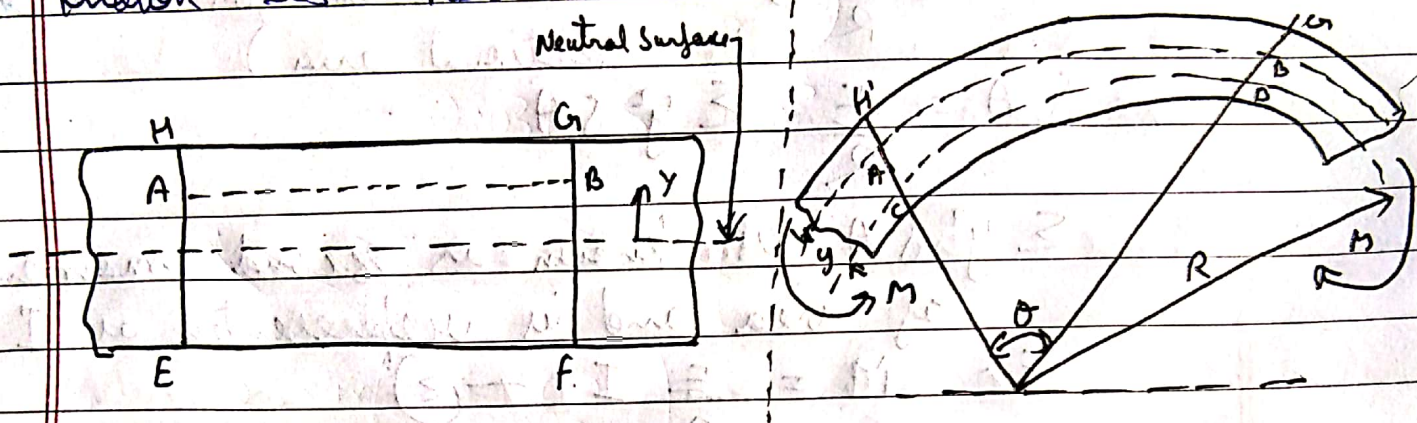 Neutral Surface
H G
A B Y
E F.
G
B
D
H'
A
C
y
M
R
M
θ